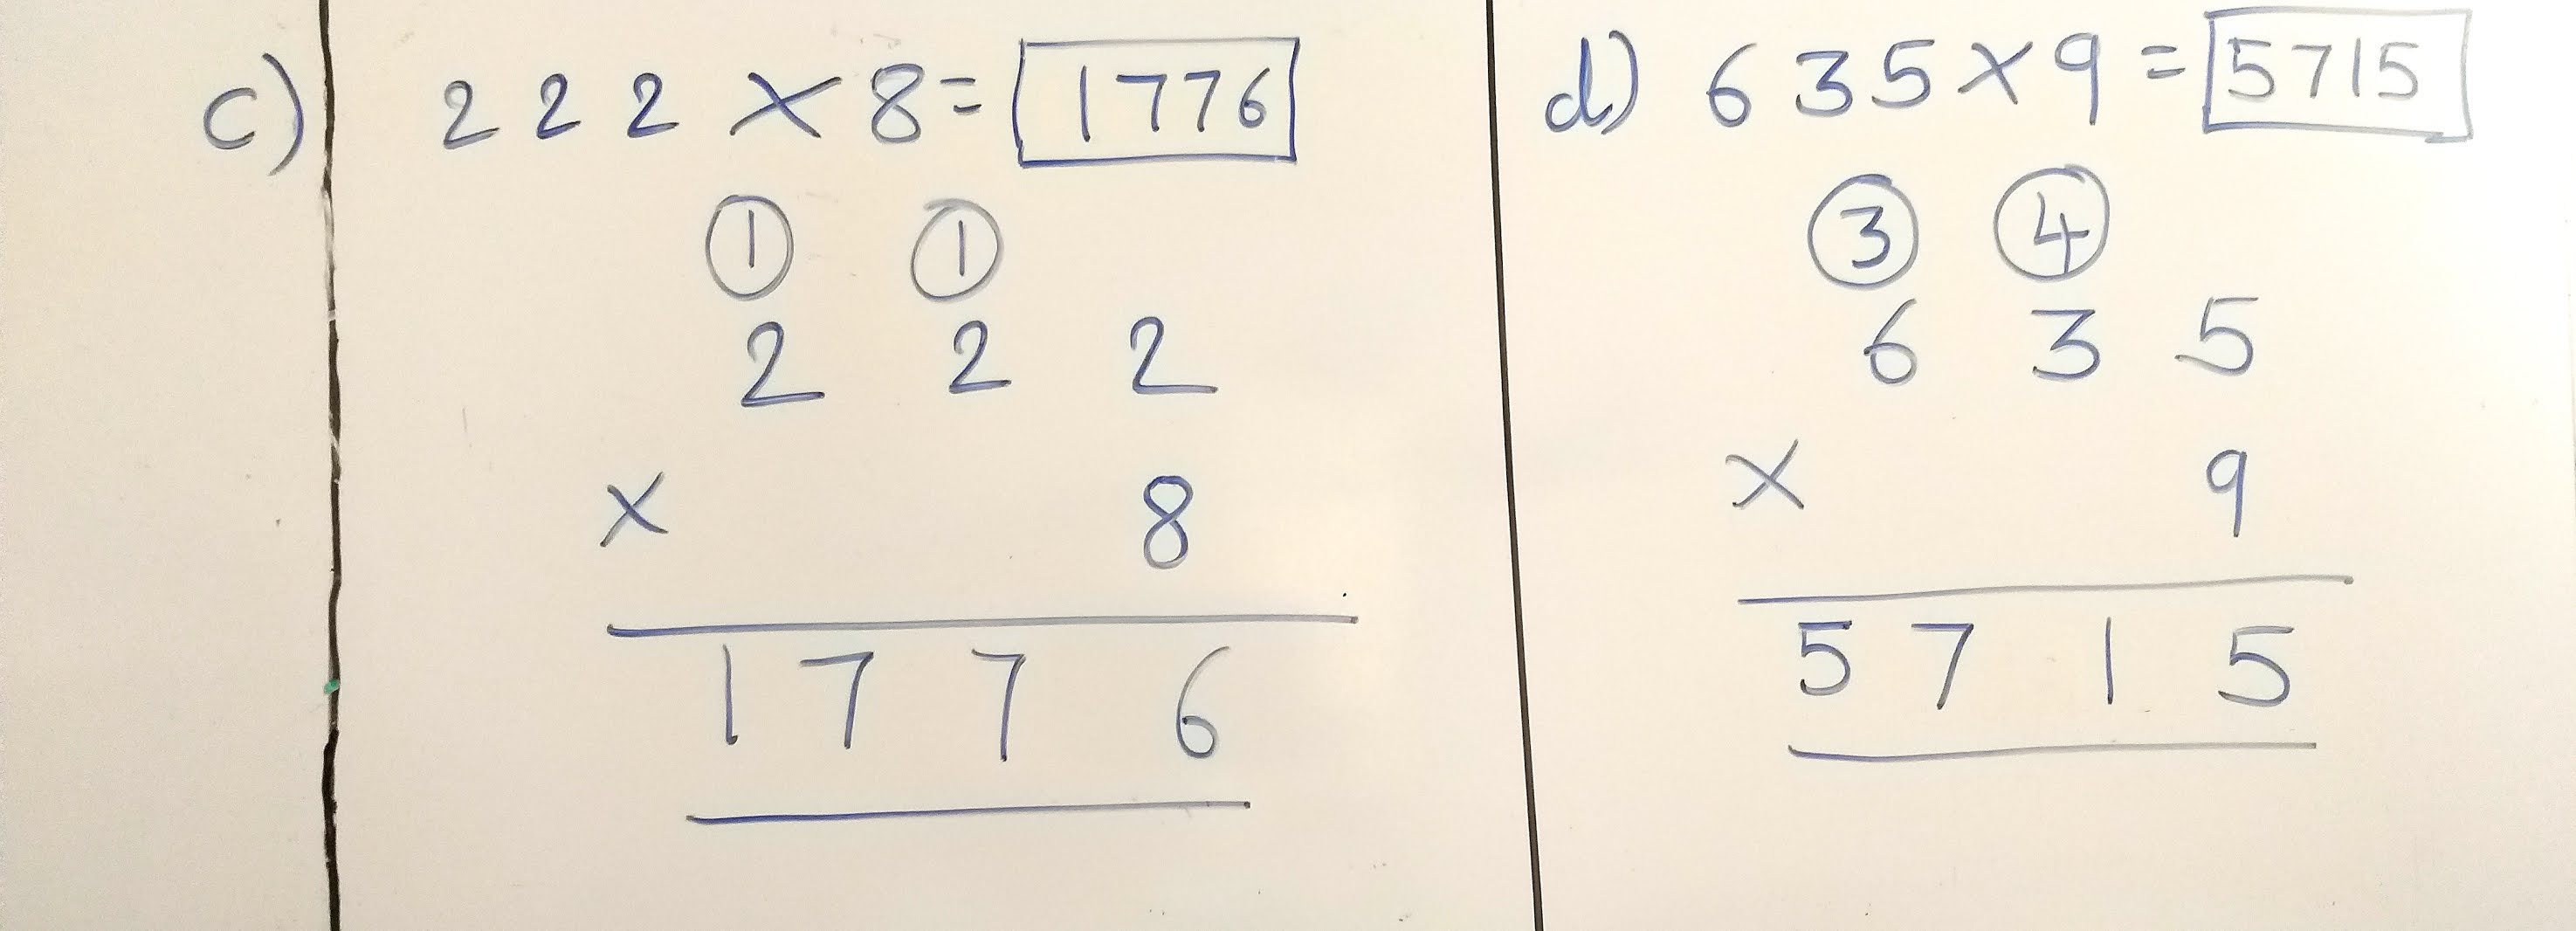 c) 222 × 8 = 1776
① ①
2 2 2
× 8
1 7 7 6
d) 635 × 9 = 5715
③ ④
6 3 5
× 9
5 7 1 5